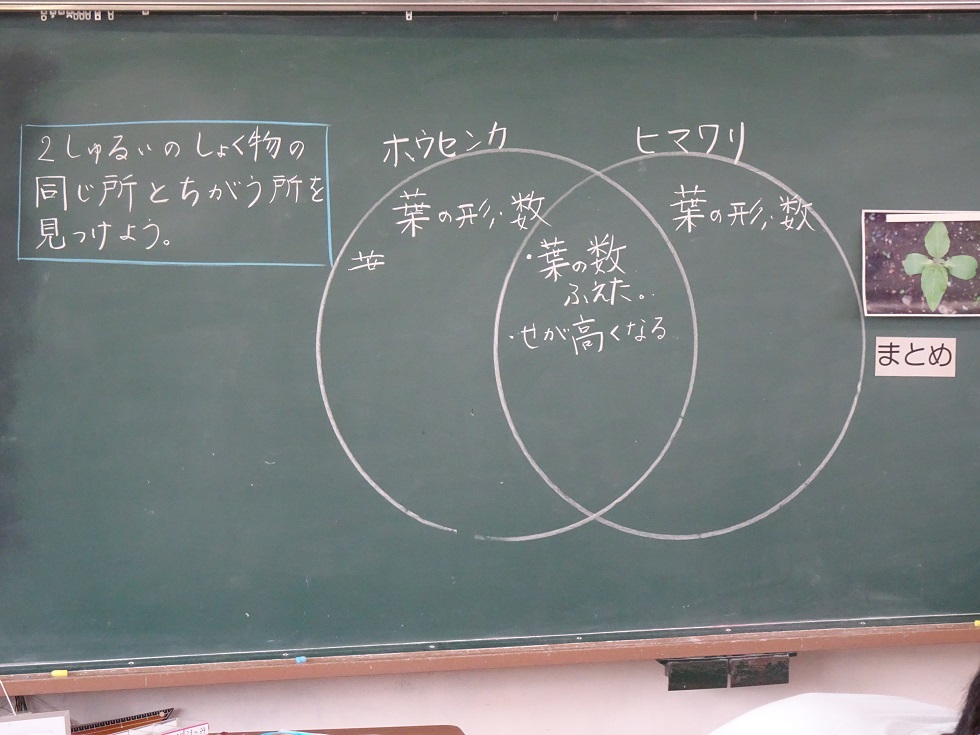 2しゅるいのしょく物の
同じ所とちがう所を
見つけよう。
ホウセンカ
葉の形、数
ヒマワリ
葉の形、数
・葉の数
ふえた。
・せが高くなる
まとめ